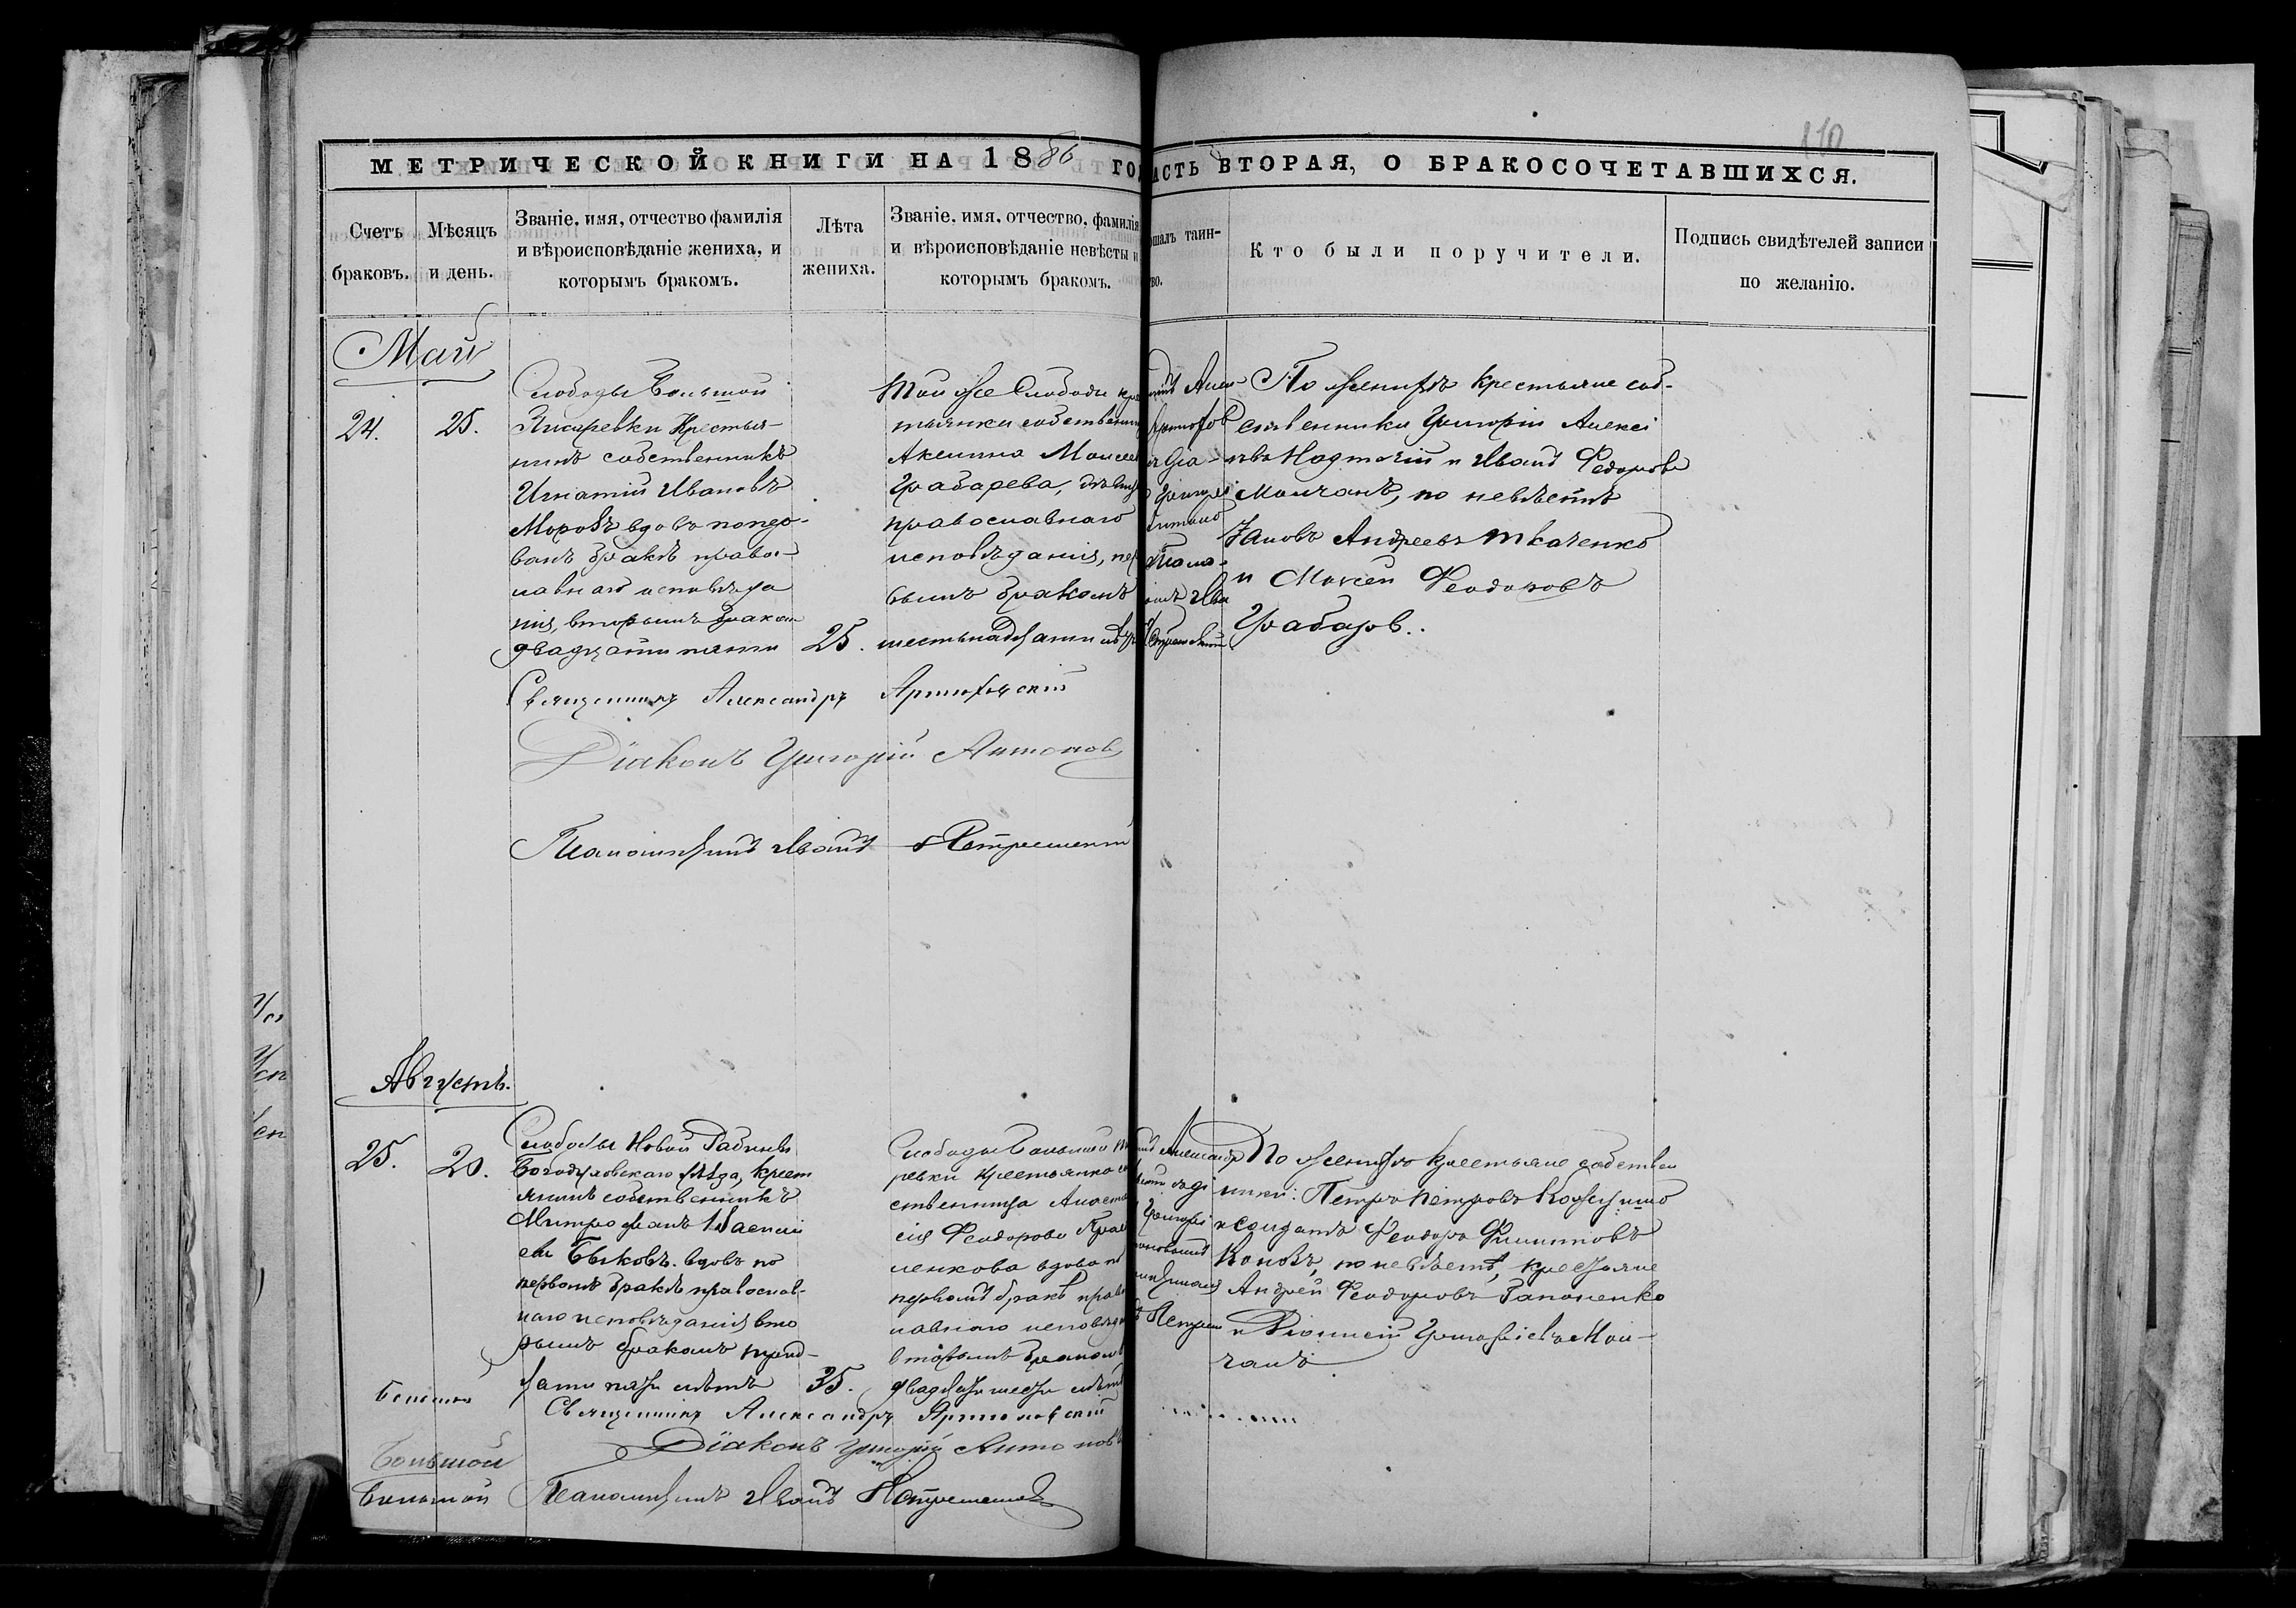 110
МЕТРИЧЕСКОЙ КНИГИ НА 1886 ГО
АСТЬ ВТОРАЯ, О БРАКОСОЧЕТАВШИХСЯ.
Счетъ браковъ.
Мѣсяцъ и день.
Званіе, имя, отчество фамилія
и вѣроисповѣданіе жениха, и
которымъ бракомъ.
Лѣта
жениха.
Званіе, имя, отчество, фамилія
и вѣроисповѣданіе невѣсты и
которымъ бракомъ.
ршалъ таин-
во.
Кто были поручители.
Подпись свидѣтелей записи
по желанію.
Май
24.
25.
Слободы Большой
Писаревки Крестья-
нинъ собственникъ
Игнатій Ивановъ
Морозъ вдовъ по пер-
вомъ бракѣ правос-
лавнаго исповѣда
нія, вторымъ браком
двадцати пяти
25.
Той же Слободы кре
тьянка собственни
Аксинія Моисеев
Грабарева, дѣвица
православнаго
исповѣданія, пер
вымъ бракомъ
шестьнадцати лѣтъ
По женихѣ крестьяне соб-
ственники Григорій Алексѣ
евъ и Иванъ Федоровъ
Молчанъ, по невѣстѣ
Яковъ Андреевъ Ткаченко
и Моисей Феодоровъ
Грабаров..
Священникъ Александръ Артюховскій
Діаконъ Григорій Антонов
Псаломщикъ Иванъ
Августъ.
25.
20.
Слободы Новой Рябины
Богодуховскаго уѣзда, крест
янинъ собственникъ
Митрофанъ Васильи
евъ Быковъ вдовъ по
первомъ бракѣ православ-
наго исповѣданія вто
рымъ бракомъ трид-
цати пяти лѣтъ
35.
Слободы Большой Пи
ревки крестьянка со
ственница Анаста
сія Феодорова
ленкова вдова по
первомъ бракѣ право
лавнаго исповѣда
вторымъ бракомъ
двадцати шести лѣтъ
По женихѣ крестьяне собствен
ники: Петръ Петровъ
и солдатъ Феодоръ Филипповъ
по невѣстѣ, крестьяне
Андрей Феодоровъ Гапоненко
и Діонисій Григорьевъ Мол-
чанъ
Священникъ Александръ Артюховскій
Діаконъ Григорій Антонов
Большой
Большой
Псаломщикъ Иванъ